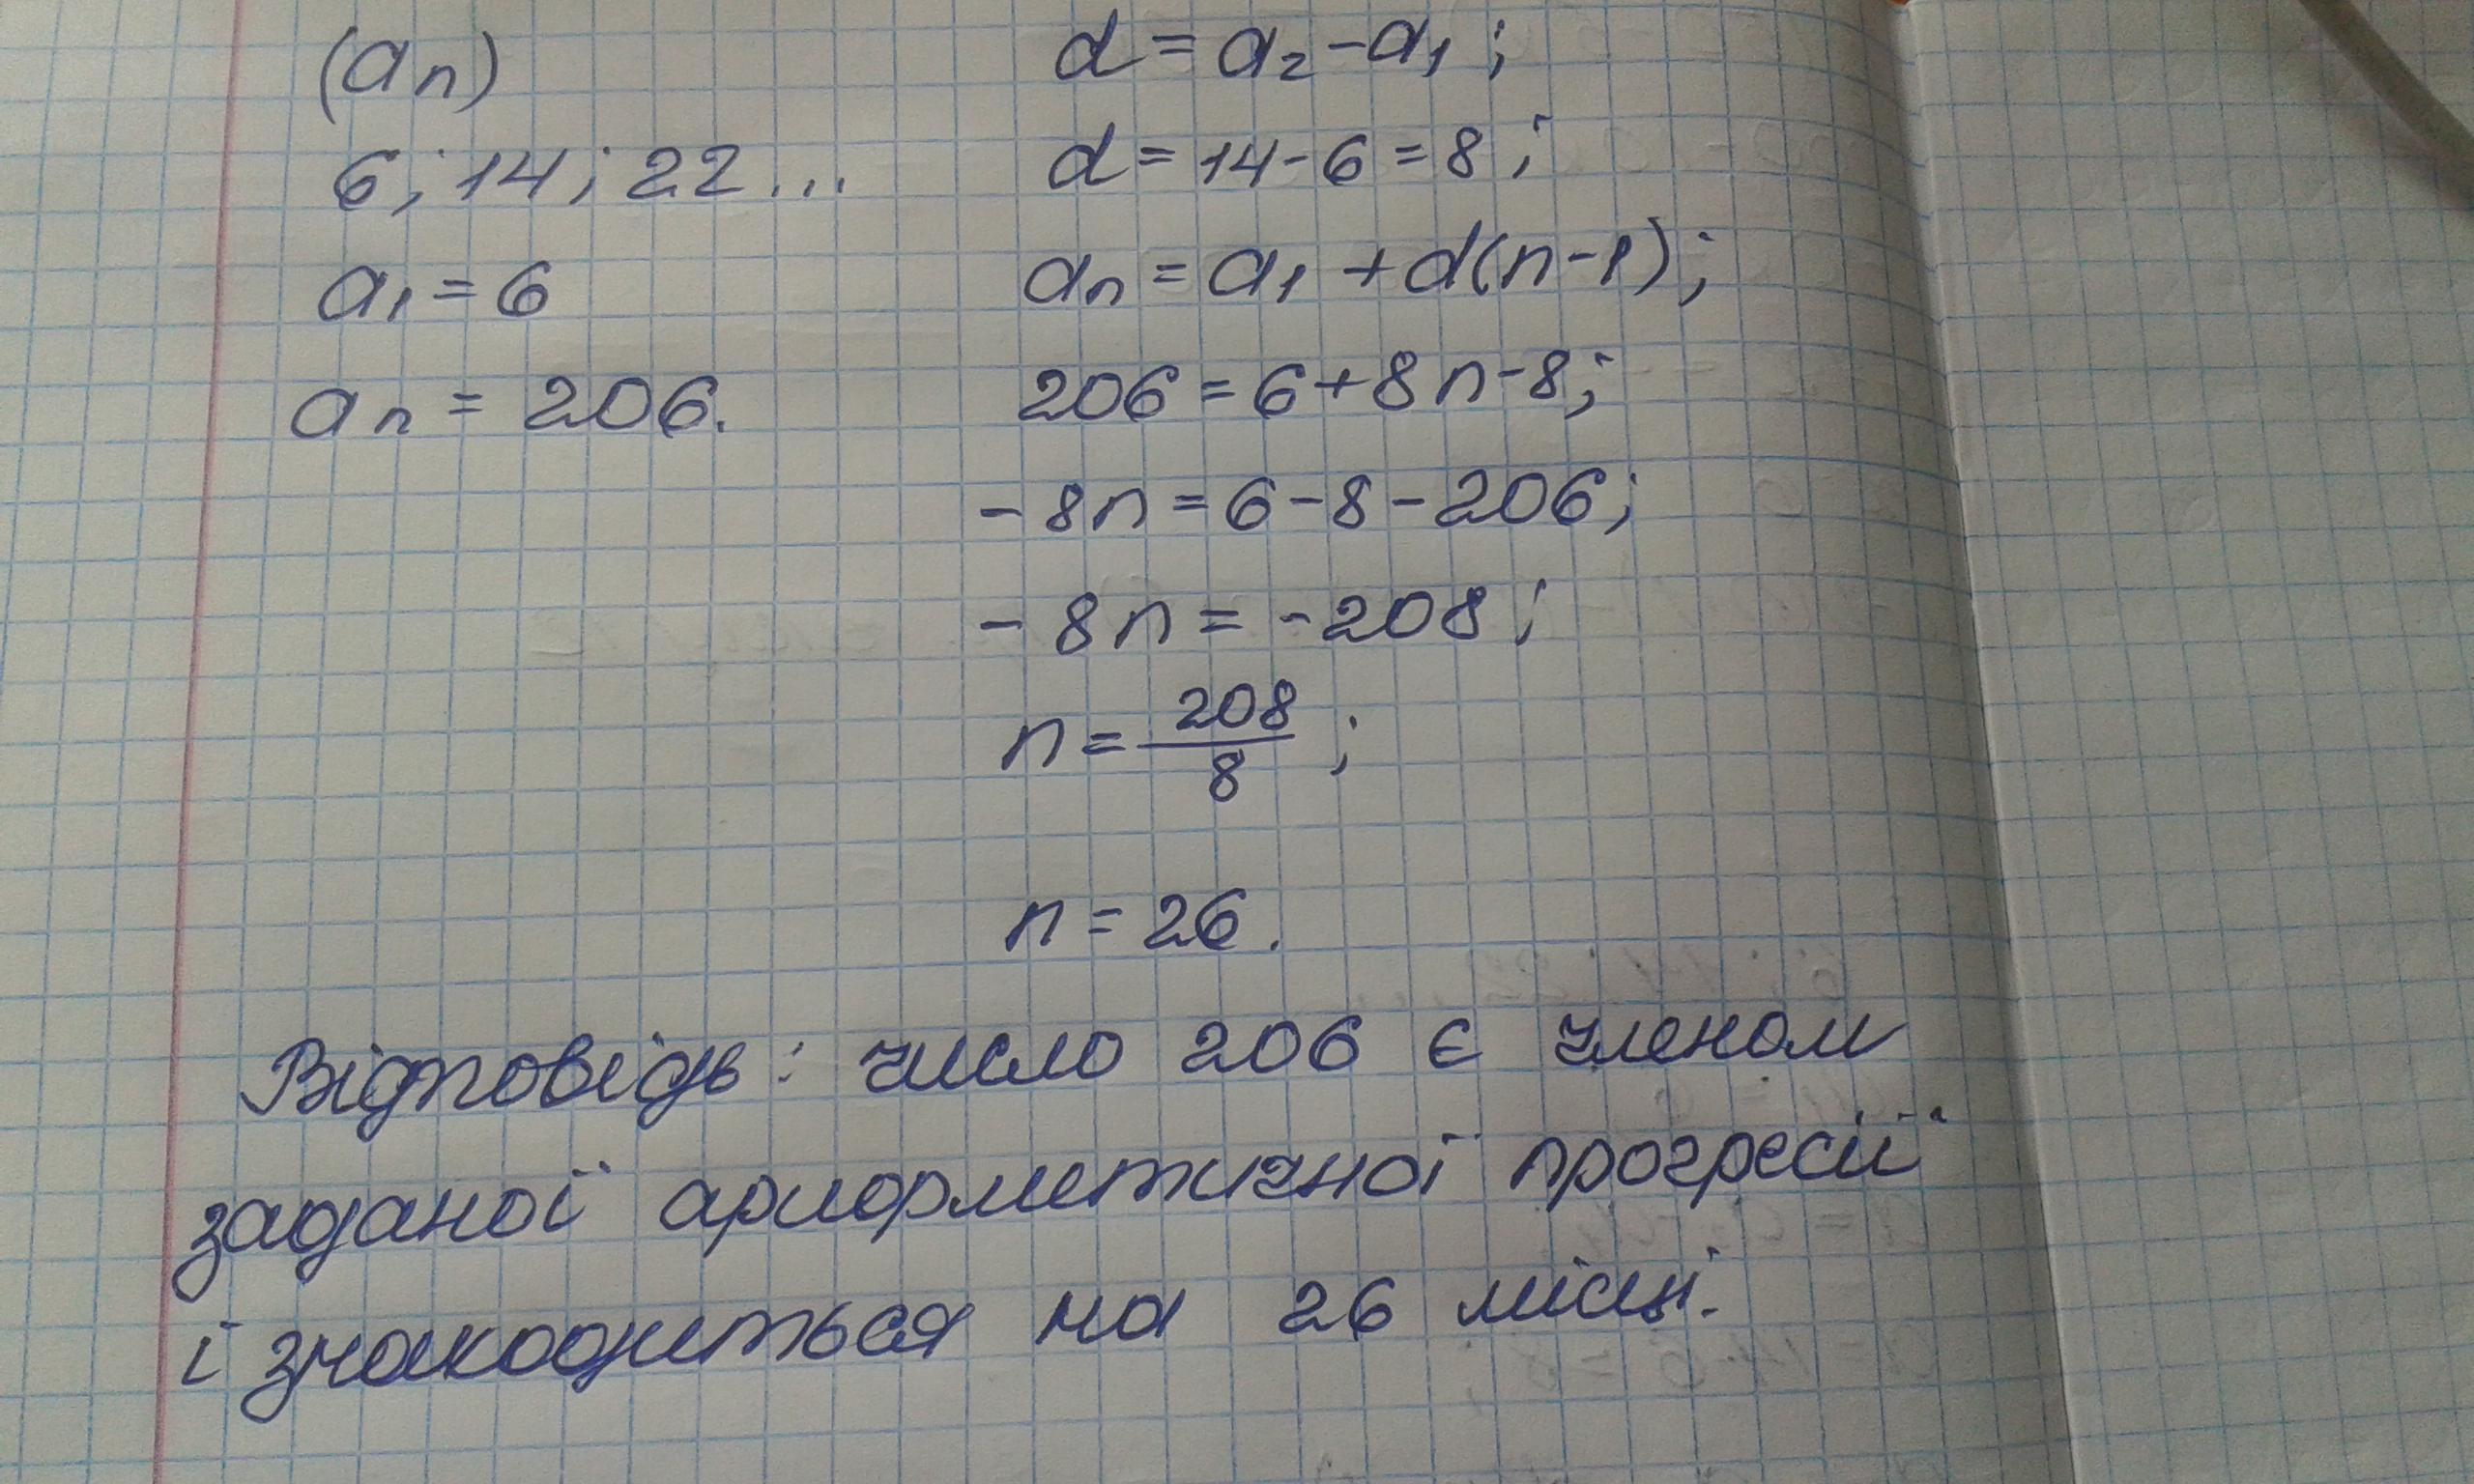 (an)
6; 14; 22...
a1 = 6
an = 206.
d = a2 - a1;
d = 14 - 6 = 8;
an = a1 + d(n-1);
206 = 6 + 8n - 8;
- 8n = 6 - 8 - 206;
- 8n = -208;
n = 208/8;
n = 26.
Відповідь: число 206 є членом
заданої арифметичної прогресії
і знаходиться на 26 місці.